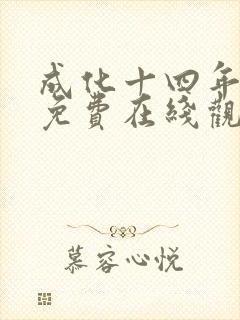 成化十四年
免費在綫觀
慕容心悦